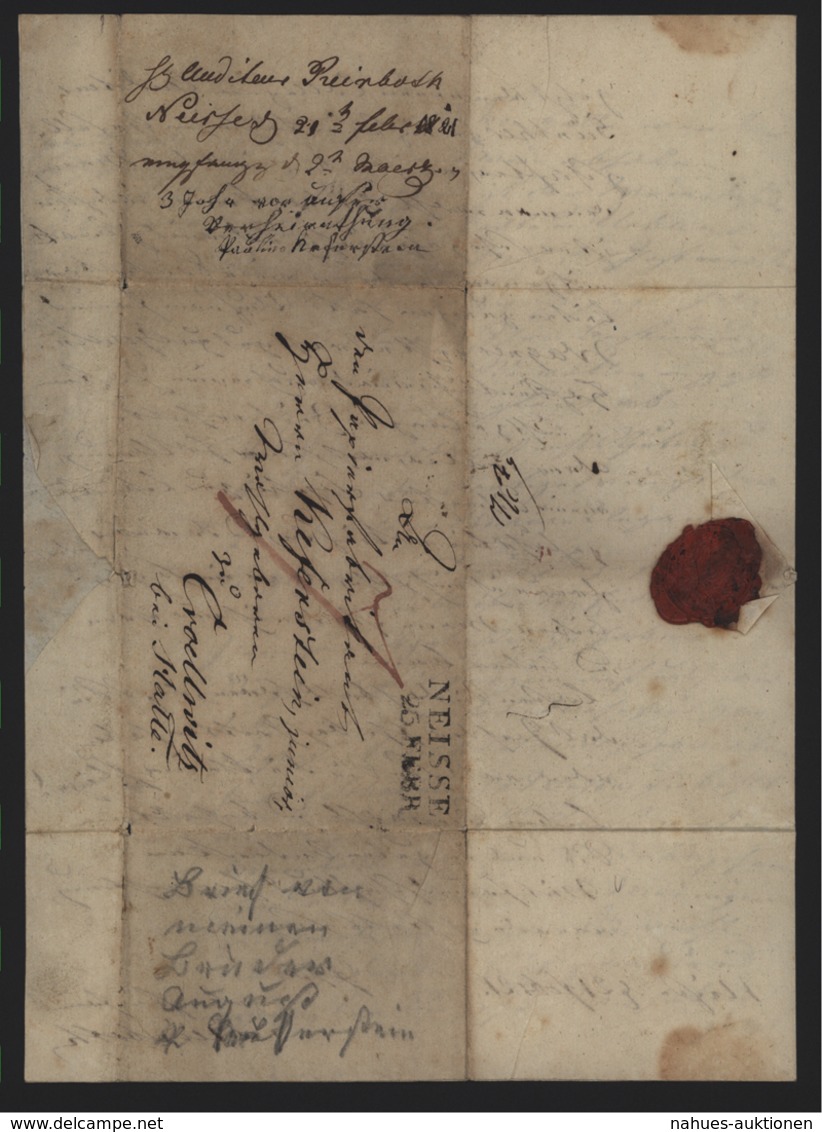 Auditeur Reinboth
Neisse d 21 Febr 1821
empfangen d 2 Maerz
3 Jahr vor unsrer
Verheirathung.
Pauline Keferstein
An
den Papierfabrikant
Herrn Keferstein, junior,
zu
Croellwitz
bei Halle.
NEISSE
25 FEBR
Brief von
meinen
Bruder
August
P Keferstein
www.delcampe.net
nahues-auktionen